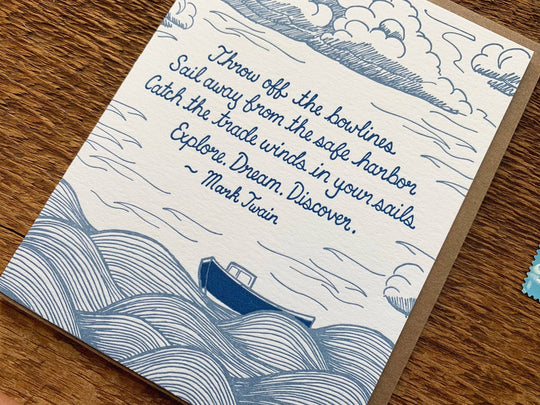 Throw off the bowlines
Sail away from the safe harbor
Catch the trade winds in your sails
Explore. Dream. Discover.
~ Mark Twain